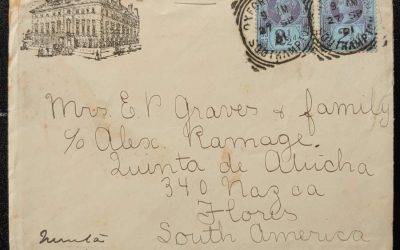 Mrs. E. P. Graves & family
c/o Alex. Ramage.
Quinta de Alicha
340 Nazca
Flores
South America